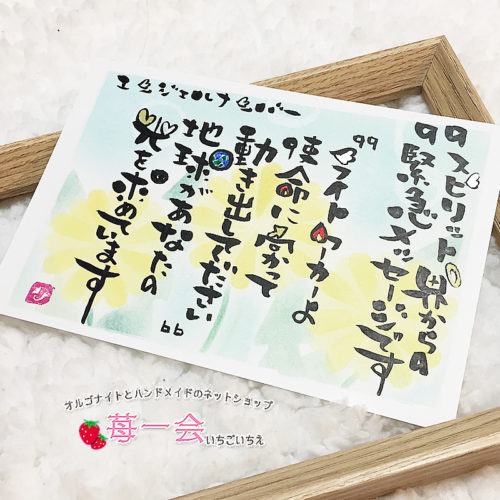 エンジェルナンバー
99スピリット界からの
99緊急メッセージです
99
ライトワーカーよ
使命に向かって
動き出してください
地球があなたの
光を求めています
66
オルゴナイトとハンドメイドのネットショップ
苺一会いちごいちえ